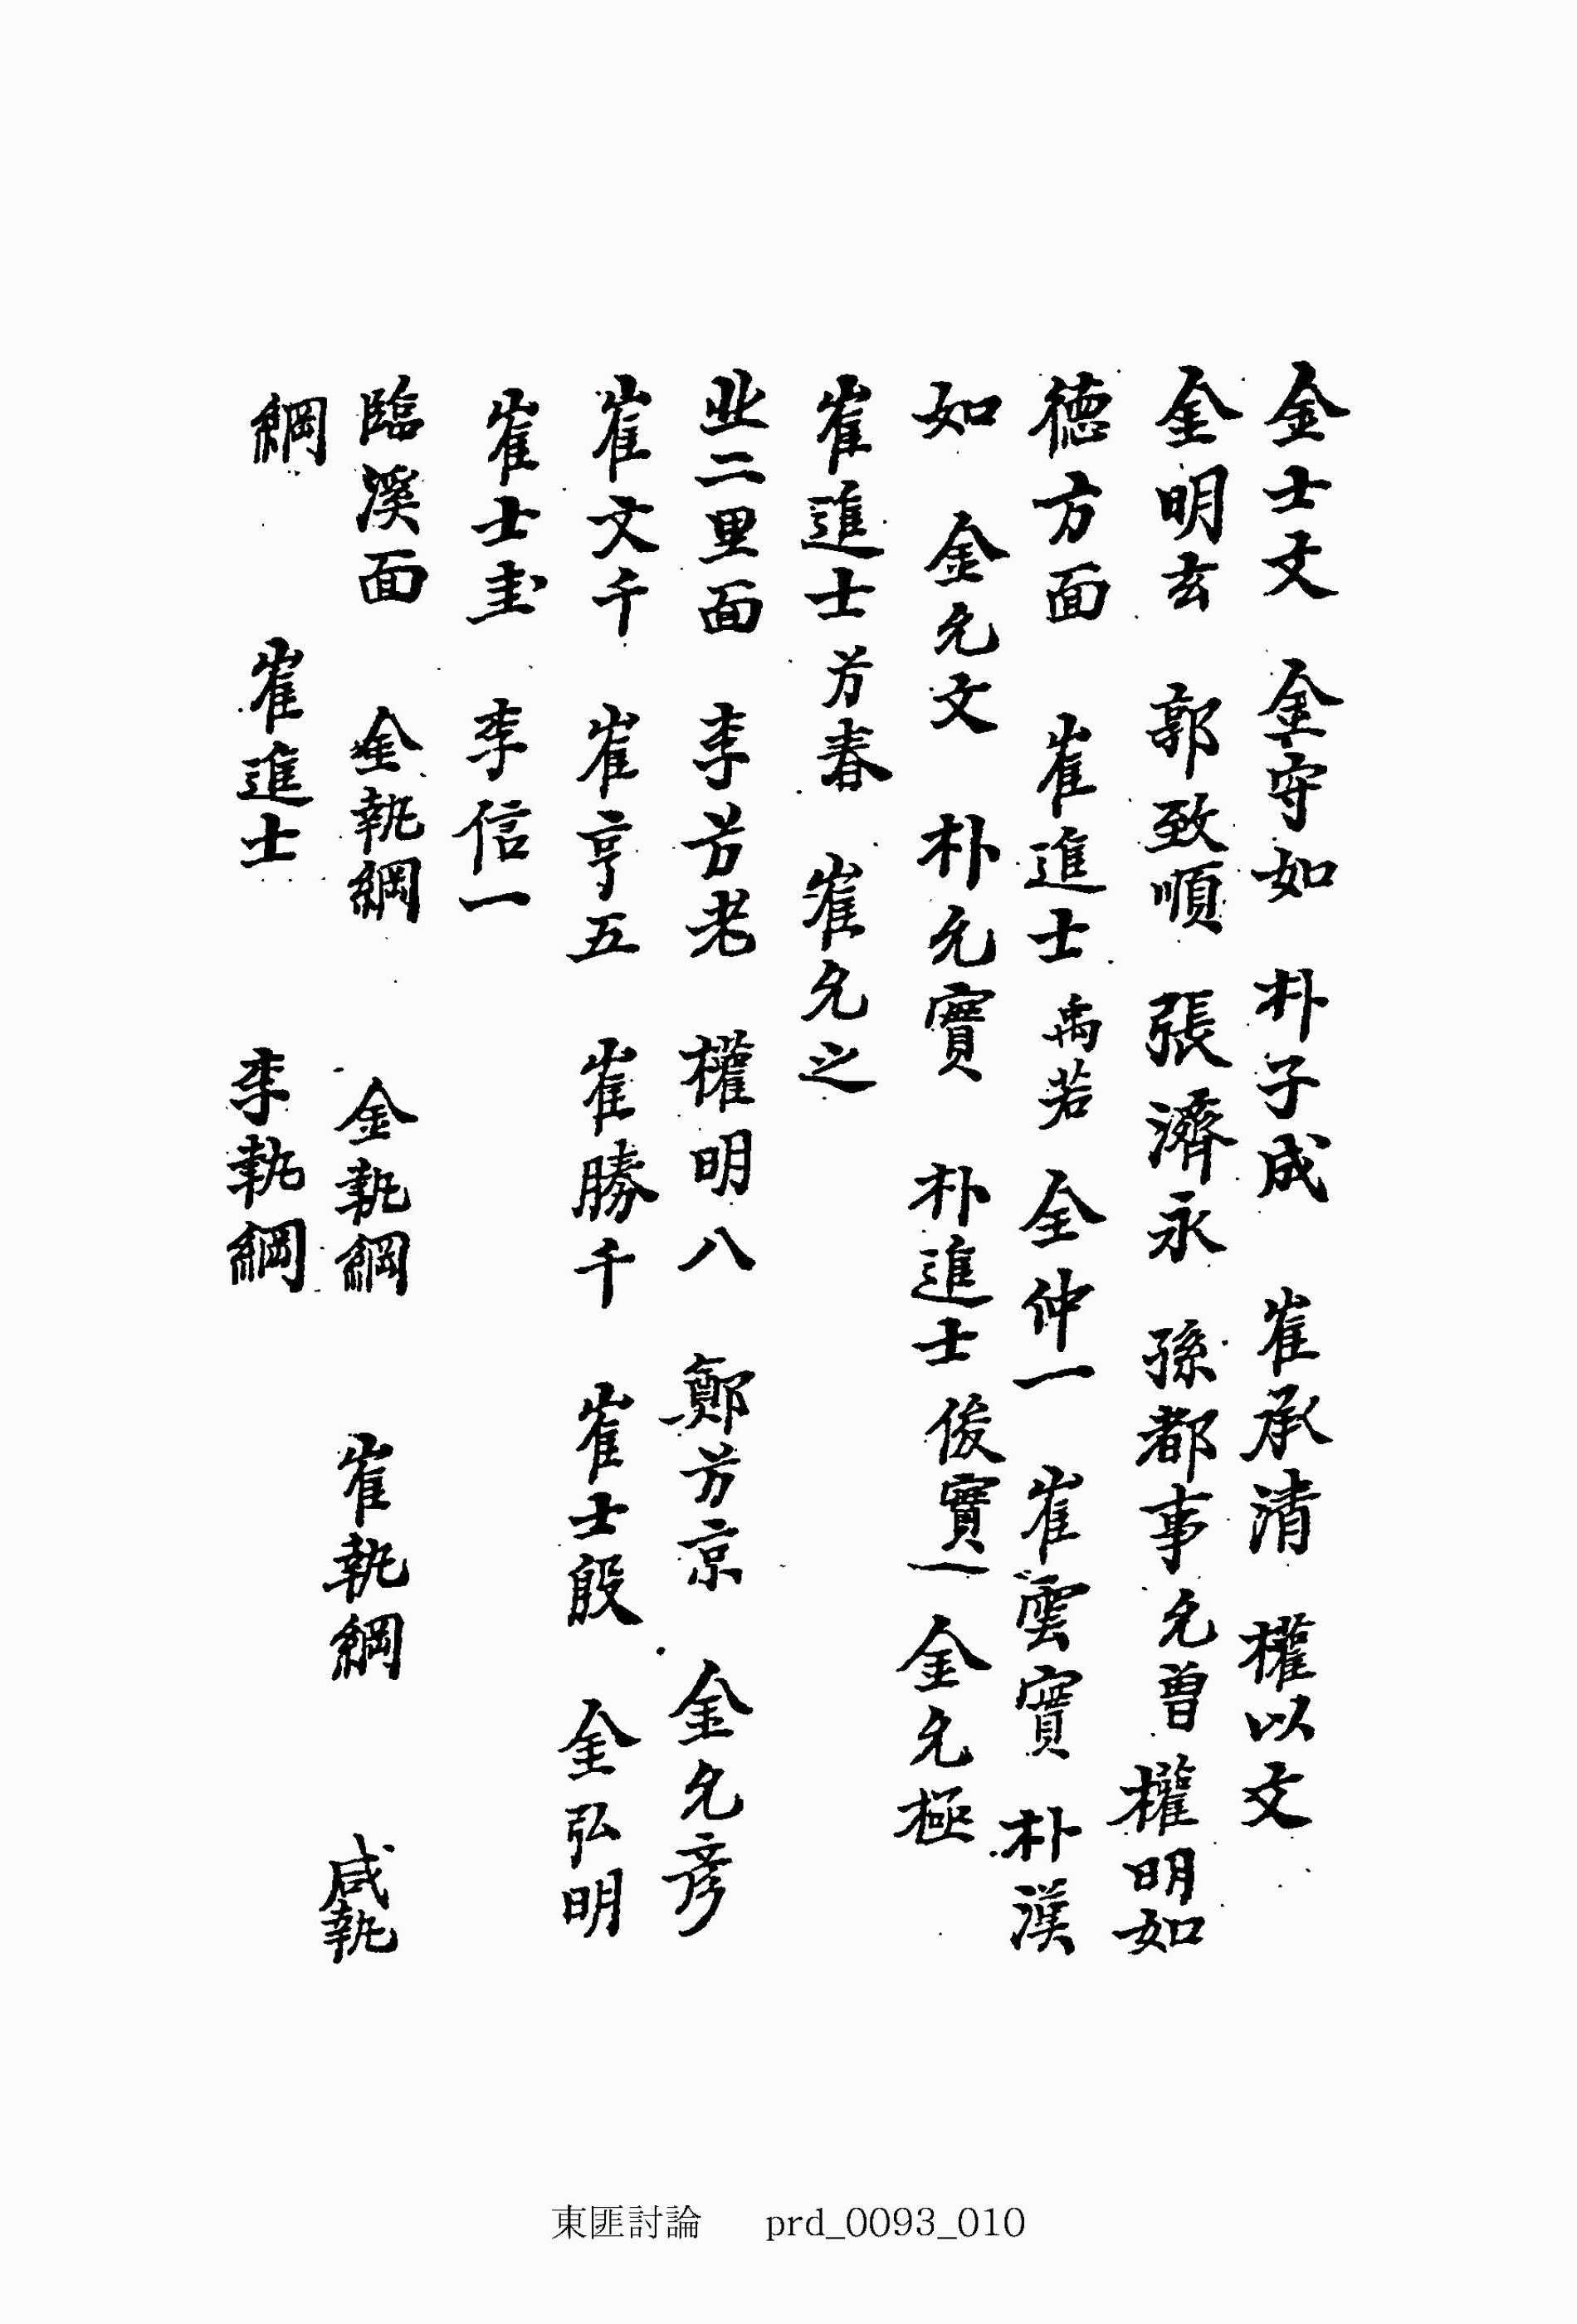 金士文 金守如 朴子成 崔承清 權以文
金明玄 郭致順 張濟永 孫都事 允曽 權明如
德方面 崔進士 禹若 全仲一 崔雲寶 朴漢
如 金允文 朴允寶 朴進士 俊實 一 金允極
崔進士 芳春 崔允之
北二里面 李芳老 權明八 鄭芳京 金允彦
崔文千 崔亨五 崔勝千 崔士殷 金弘明
崔士圭 李信一
臨溪面 全執綱 金執綱 崔執綱 咸執
綱 崔進士 李執綱
東匪討論 prd_0093_010